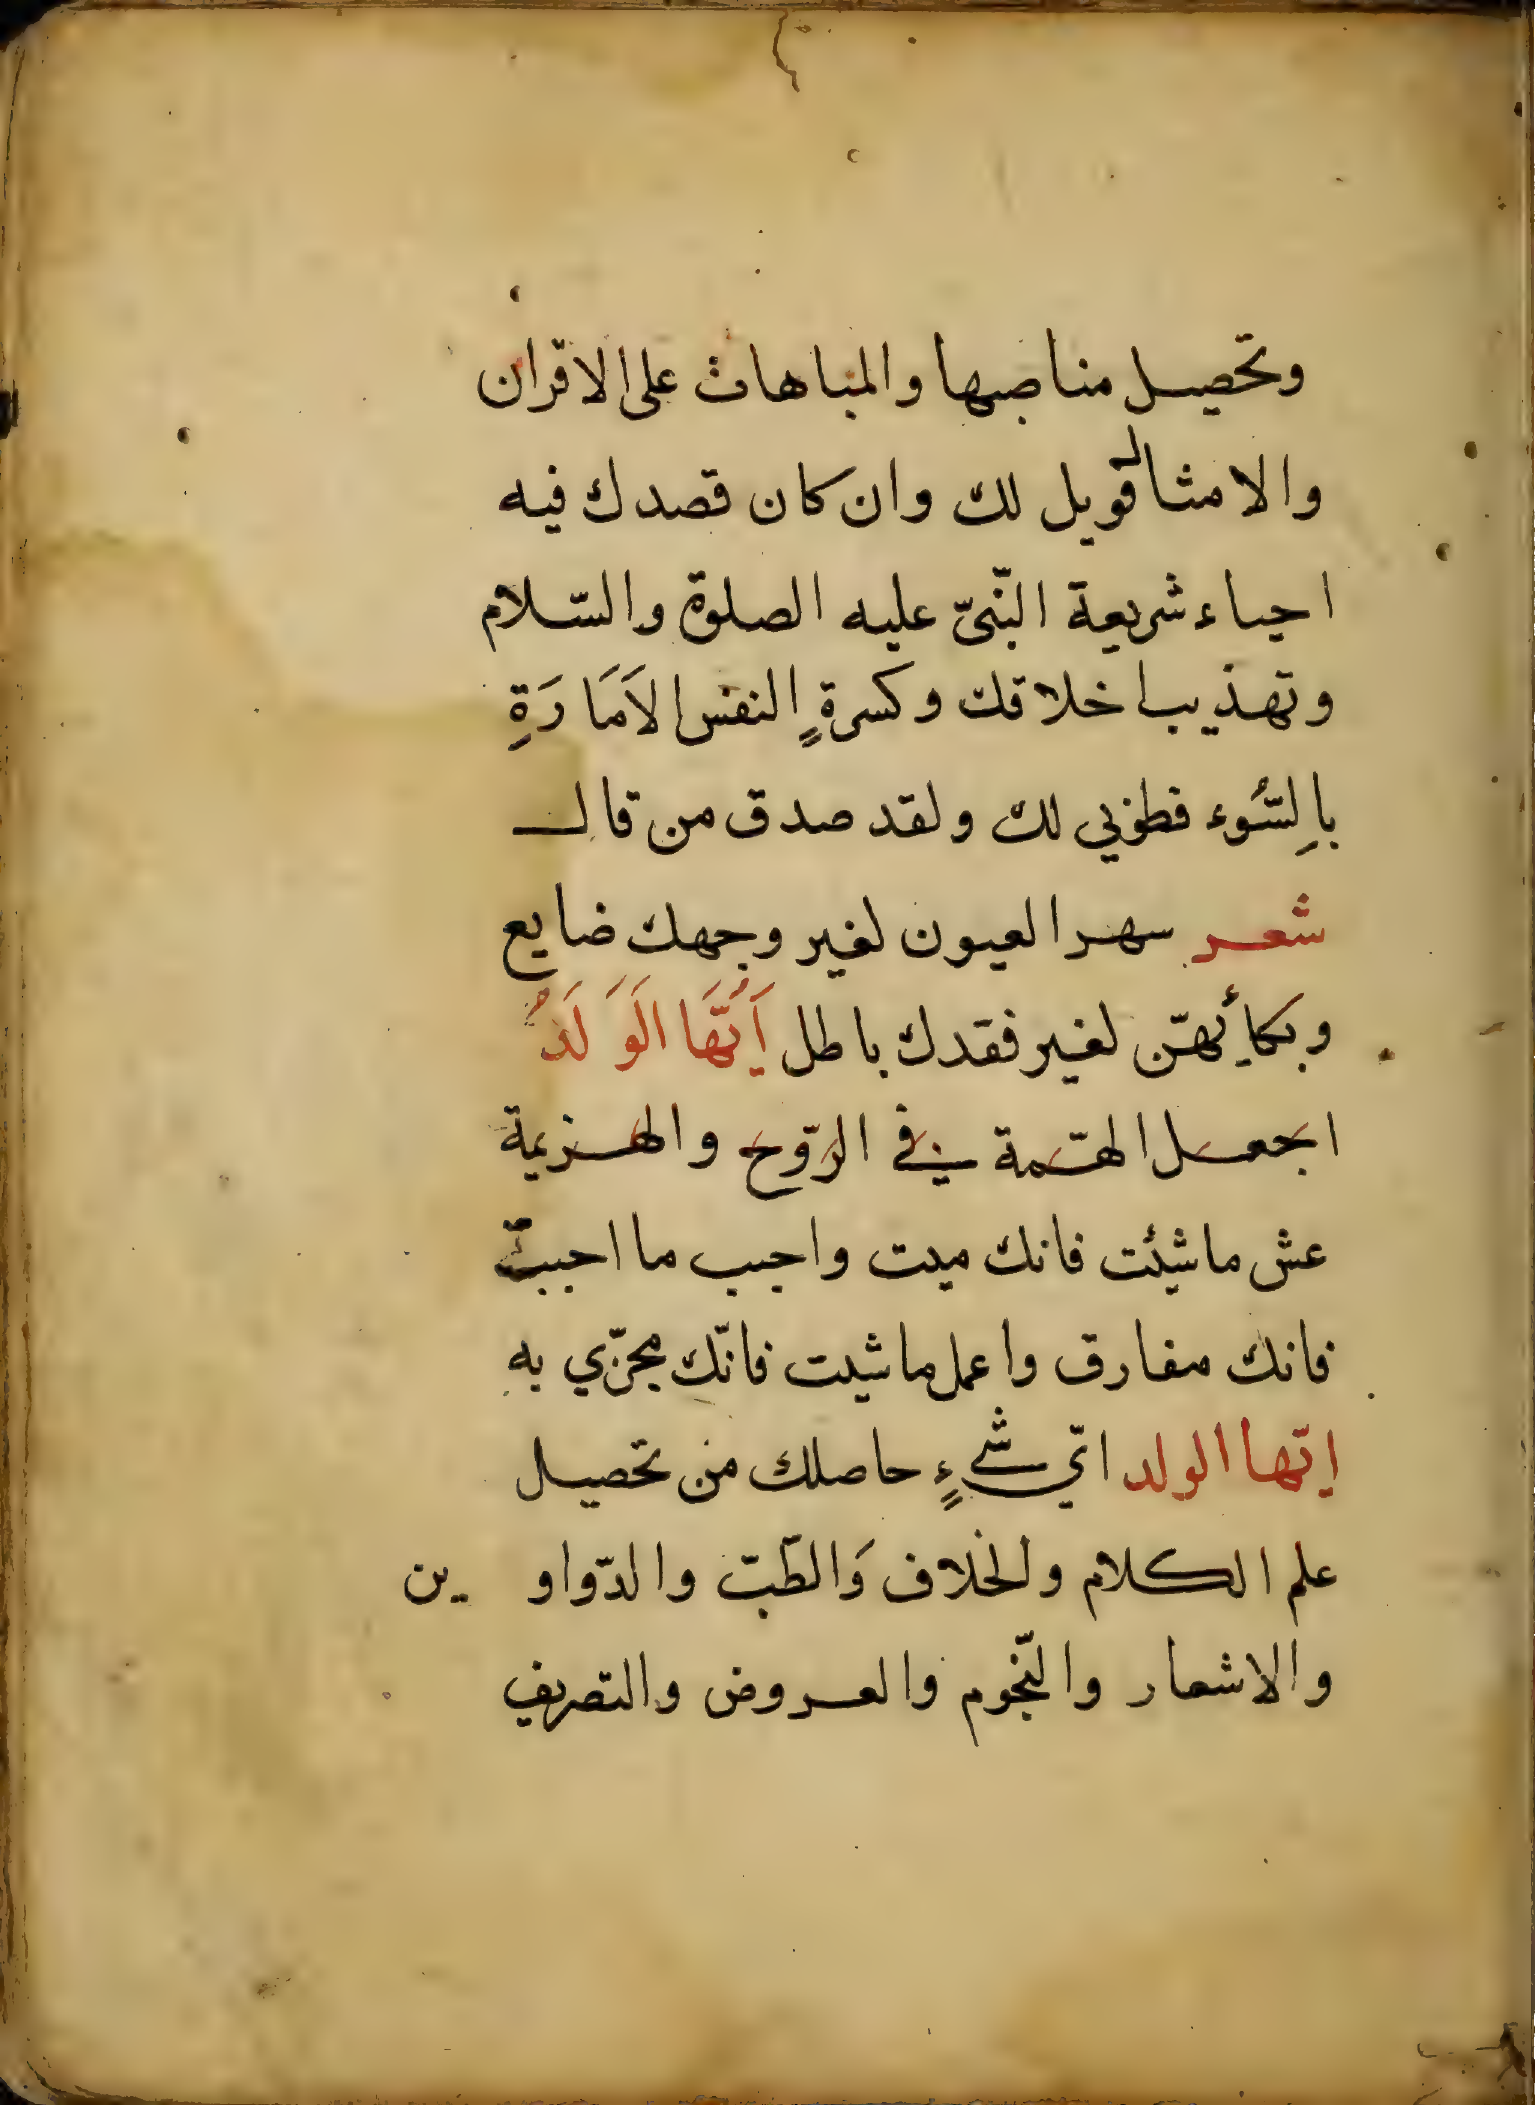 وتحصيل مناصبها والمباهات على الاقران
والامثال فويل لك وان كان قصدك فيه
احياء شريعة النّبىّ عليه الصلوة والسّلام
وتهذيب اخلاقك وكسرةٍ النفس الاَمَارَةِ
بالِسُّوء فطوبي لك ولقد صدق من قال
شعر سهر العيون لغير وجهك ضايع
وبكأئهنّ لغير فقدك باطل اَيُّهَا الَوَلَدُ
اجعل الهّمة في الرّوح والهزيمة
عش ماشئت فانك ميت واحبب ما احببت
فانك مفارق واعمل ماشيت فانّك مجزّي به
ايّها الولد ايّ شيءٍ حاصلك من تحصيل
علم الكلام والخلاف وَالطّبّ والدّواوين
والاشعار والنّجوم والعروض والتصريف